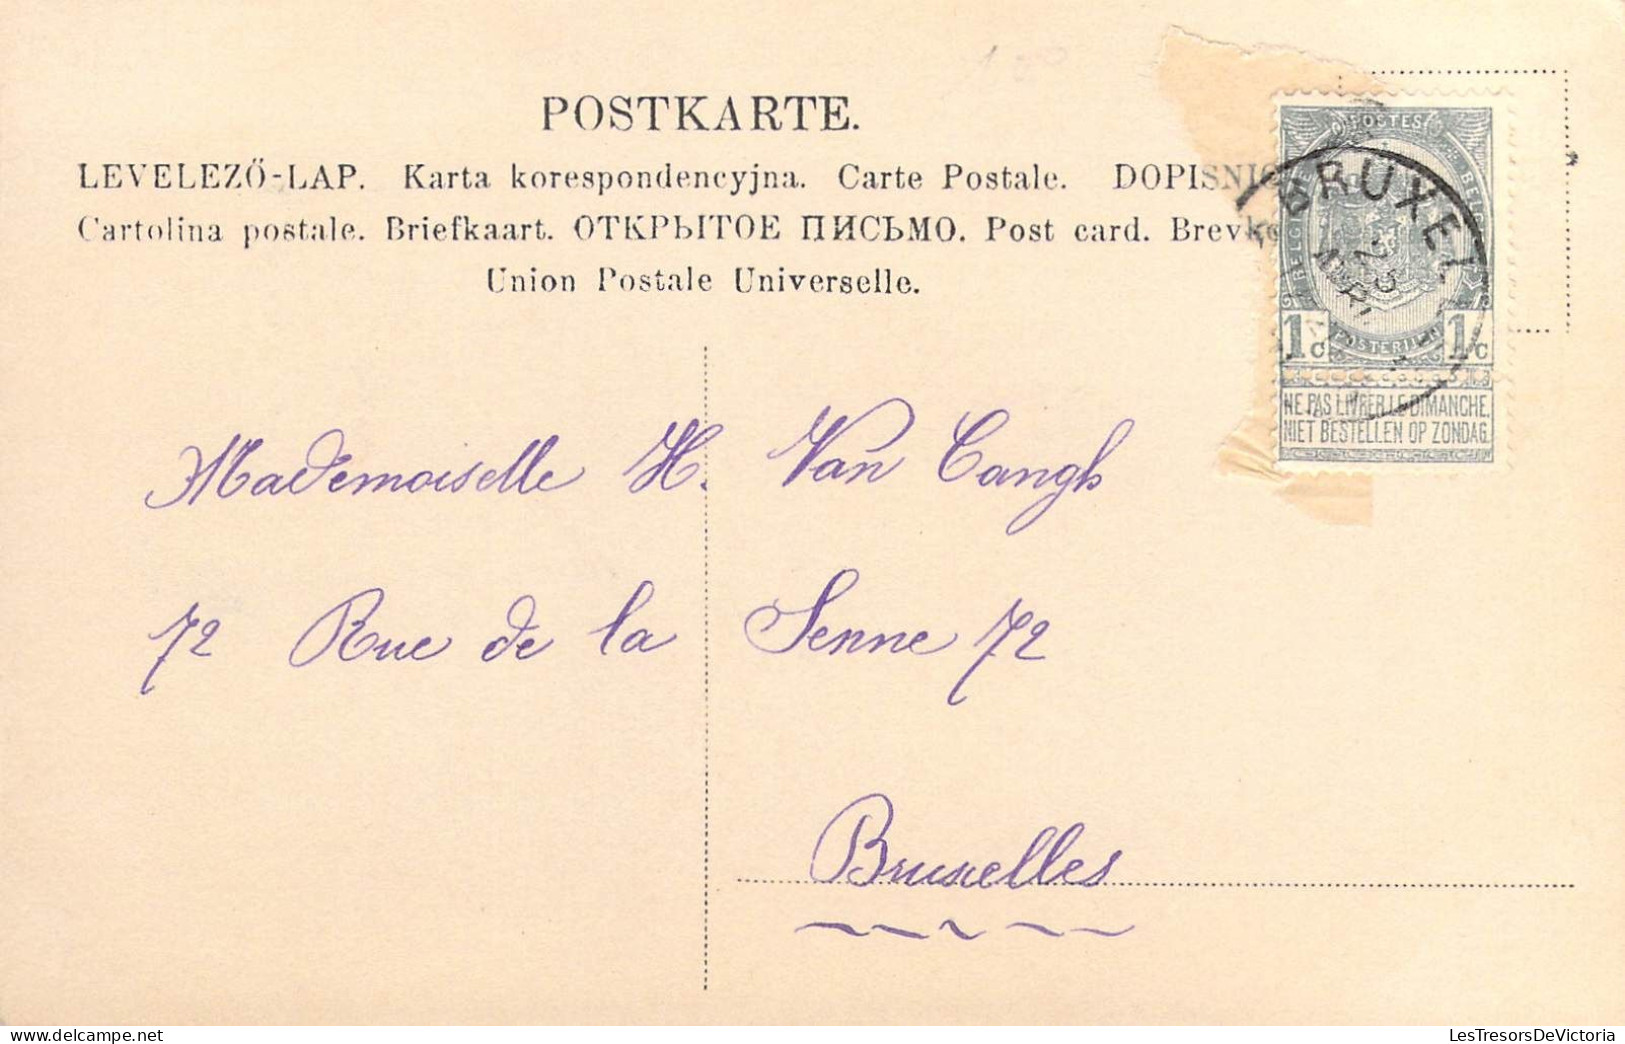 POSTKARTE.
LEVELEZŐ-LAP. Karta korespondencyjna. Carte Postale. DOPISNIC
Cartolina postale. Briefkaart. ОТКРЫТОЕ ПИСЬМО. Post card. Brevk
Union Postale Universelle.
POSTES
BRUXEL
1c POSTERIJEN 1c
NE PAS LIVRER LE DIMANCHE.
NIET BESTELLEN OP ZONDAG.
Mademoiselle H. Van Cangh
72 Rue de la Senne 72
Bruxelles
LesTresorsDeVictoria